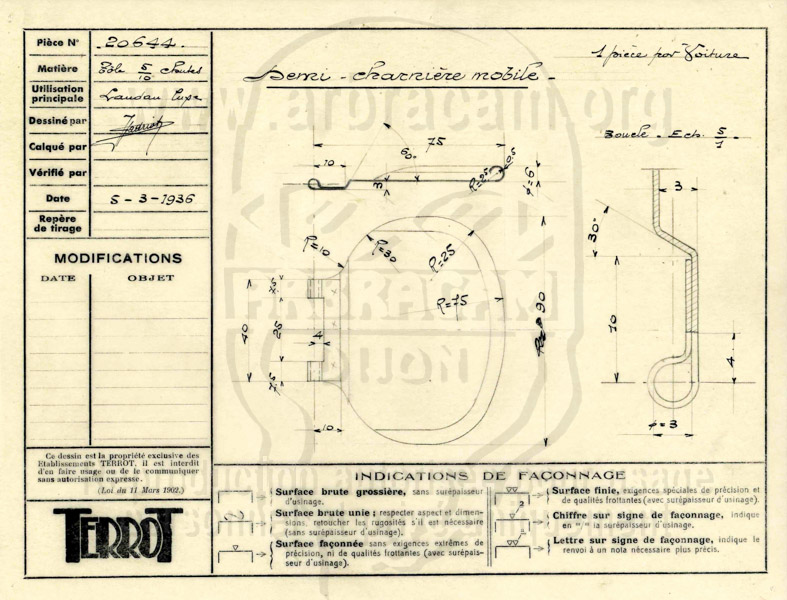 Pièce N° 20644.
Matière Tôle 5/10 chutes
Utilisation principale Landau luxe
Dessiné par
Calqué par
Vérifié par
Date 5-3-1936
Repère de tirage
MODIFICATIONS
DATE OBJET
Ce dessin est la propriété exclusive des
Etablissements TERROT, il est interdit
d'en faire usage ou de le communiquer
sans autorisation expresse.
(Loi du 11 Mars 1902.)
TERROT
1 pièce par Voiture
Demi-charnière mobile-
Boucle - Ech. 5/1 -
75
60°
10
3
R=25
0,5
R=6
R=10
R=30
R=25
R=75
40
25
4
10
3
30°
10
4
φ=3
www.arbracam.org
ARBRACAM
DIJON
INDICATIONS DE FAÇONNAGE
Surface brute grossière, sans surépaisseur
d'usinage.
Surface brute unie ; respecter aspect et dimen-
sions, retoucher les rugosités s'il est nécessaire
(sans surépaisseur d'usinage).
Surface façonnée sans exigences extrêmes de
précision, ni de qualités frottantes (avec surépais-
seur d'usinage).
Surface finie, exigences spéciales de précision et
de qualités frottantes (avec surépaisseur d'usinage).
2
Chiffre sur signe de façonnage, indique
en "/" la surépaisseur d'usinage.
Lettre sur signe de façonnage, indique le
renvoi à un nota nécessaire plus précis.